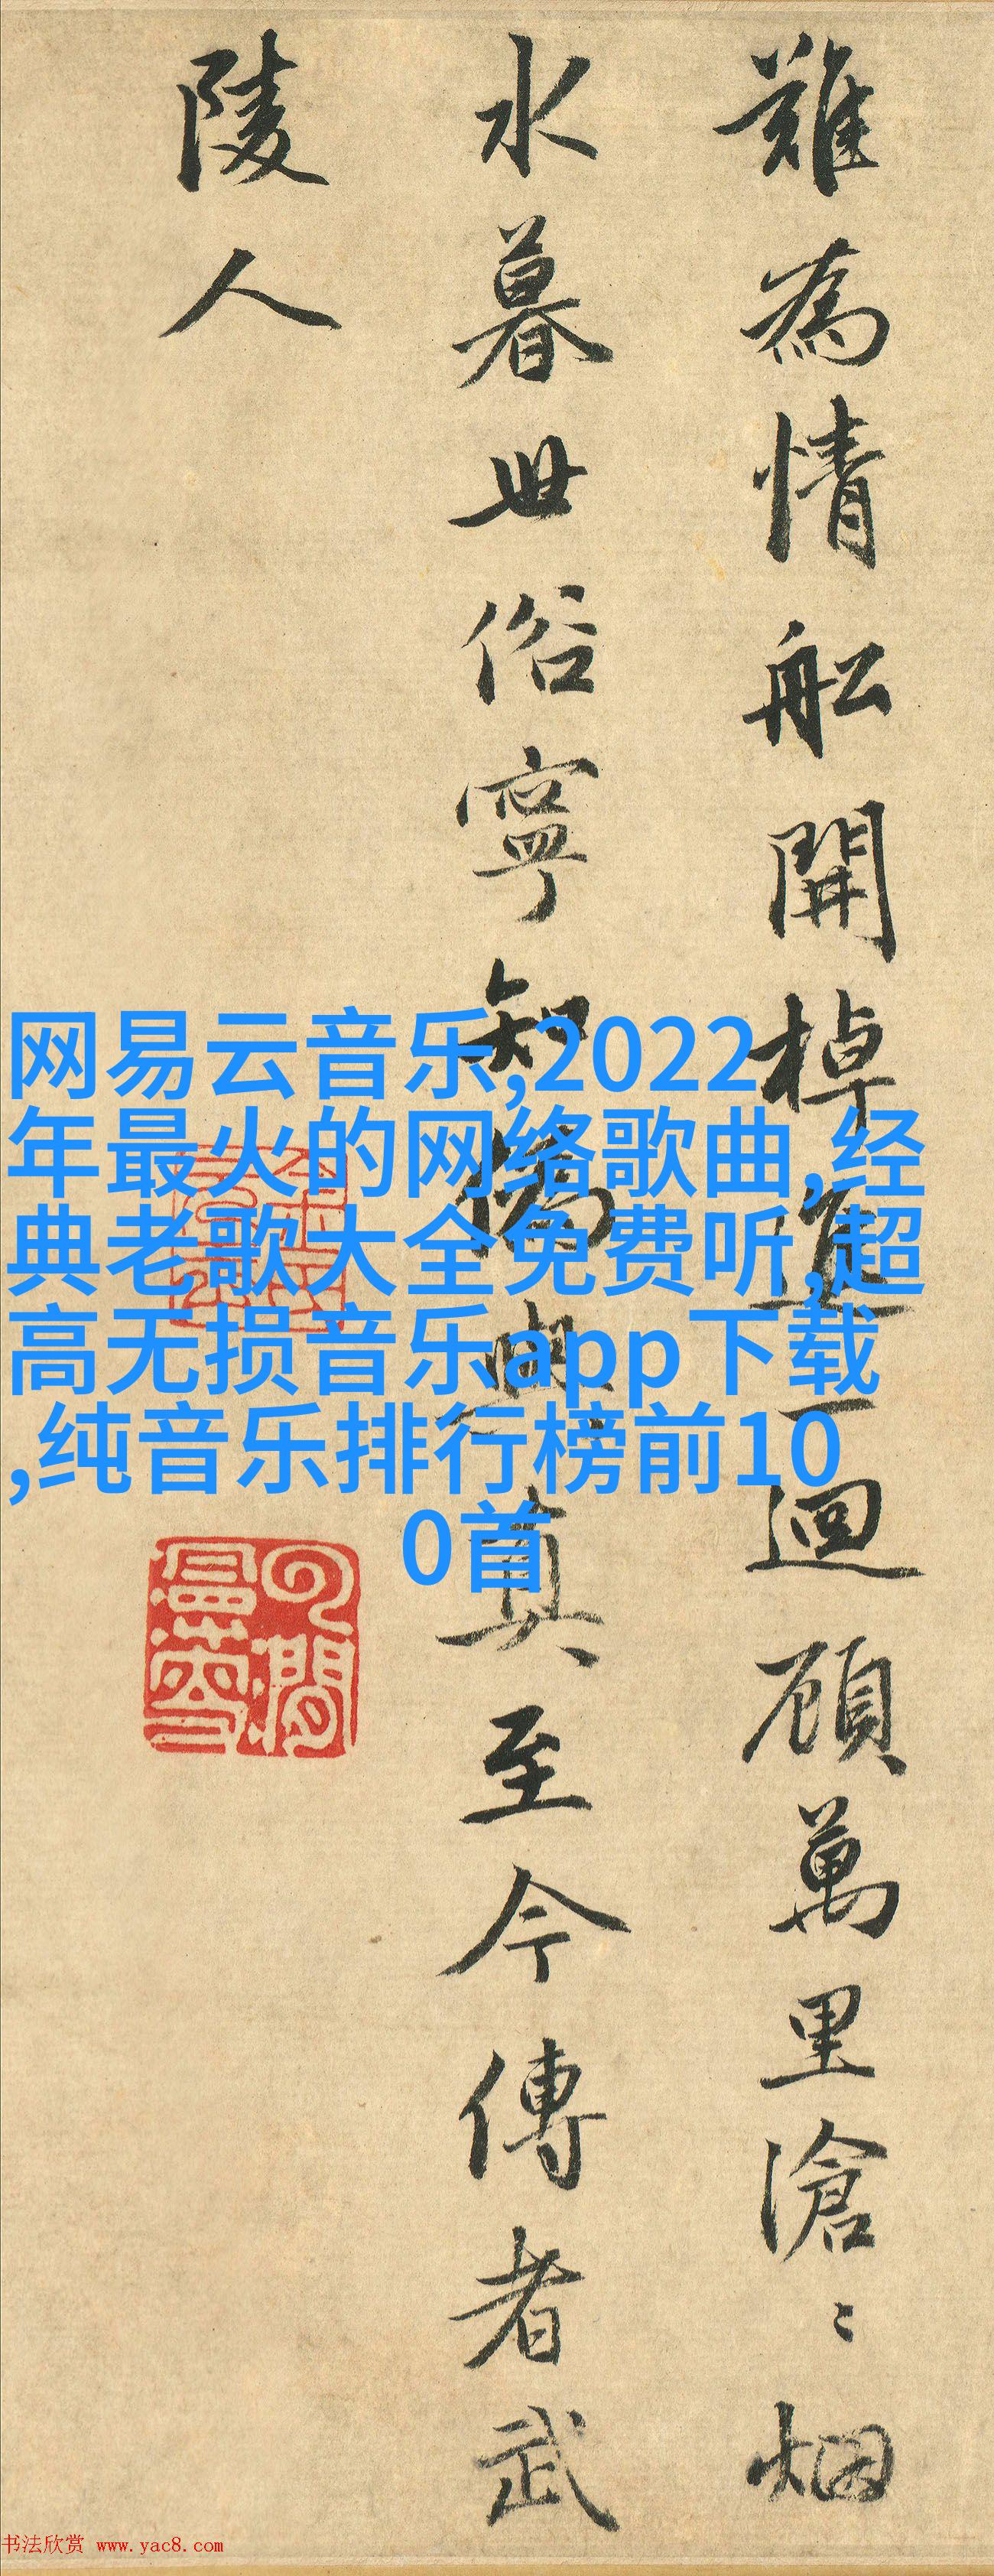 難為情舩開棹進一迴顧萬里滄〻烟
水暮世俗寧知偽與真至今傳者武
陵人
网易云音乐,2022
年最火的网络歌曲,经
典老歌大全免费听,超
高无损音乐app下载
,纯音乐排行榜前10
0首
书法欣赏 www.yac8.com